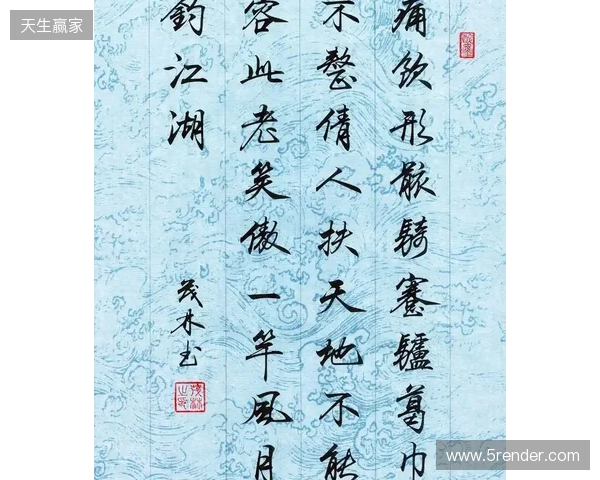 天生赢家
痛飲形骸騎蹇驢葛巾
不整倩人扶天地不能
容此老笑傲一竿風月
釣江湖
茂林书
www.5render.com